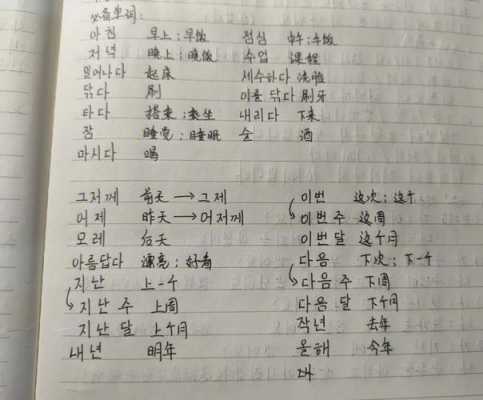 必备单词:
아침 早上;早饭 점심 中午;午饭
저녁 晚上;晚饭 수업 课程
일어나다 起床 세수하다 洗脸
닦다 刷 이를 닦다 刷牙
타다 搭乘;乘坐 내리다 下来
잠 睡觉;睡眠 술 酒
마시다 喝
그저께 前天→그제 이번 这次;这个
어제 昨天→어저께 이번 주 这周
모레 后天 이번 달 这个月
아름답다 漂亮;好看 다음 下次;下一个
지난 上一个 다음 주 下周
지난 주 上周 다음 달 下个月
지난 달 上个月 작년 去年
내년 明年 올해 今年